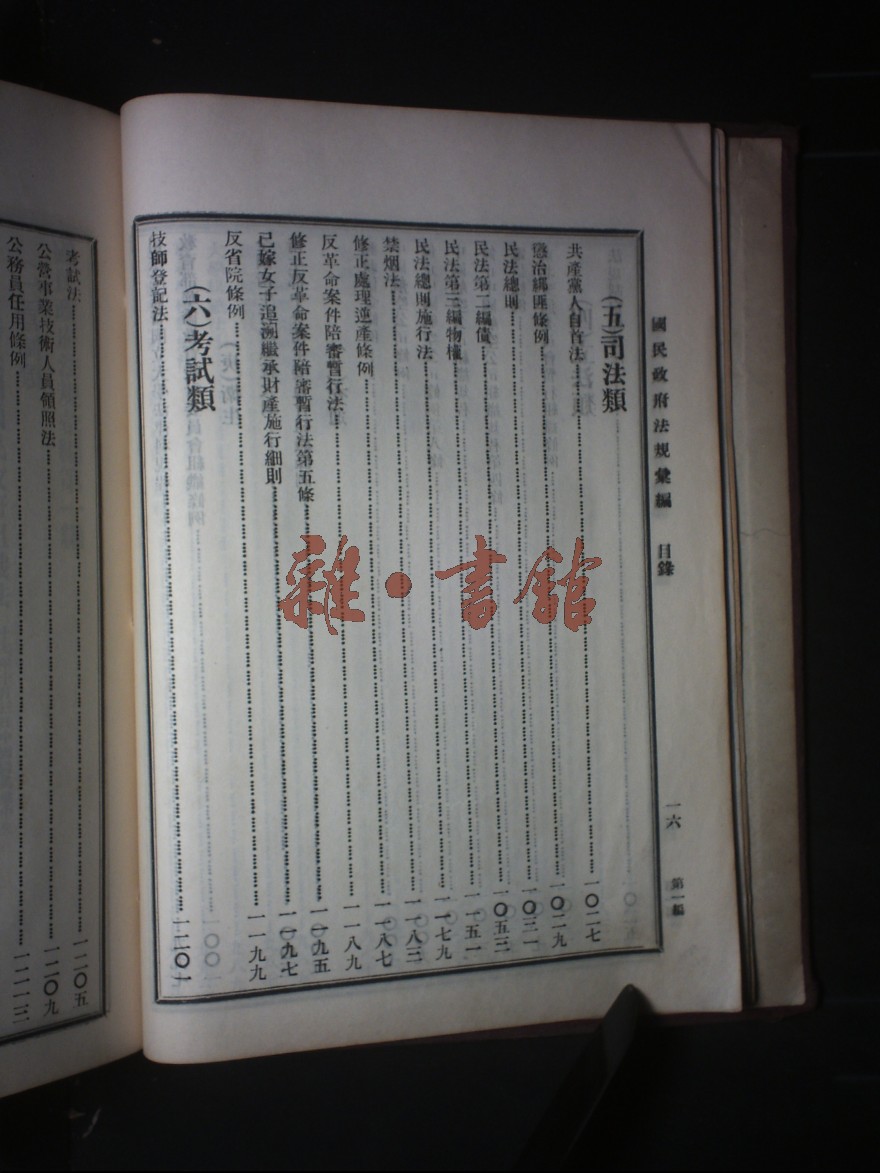 國民政府法規彙編 目錄 一六 第一編
(五)司法類
共產黨人自首法 一〇二七
懲治綁匪條例 一〇二九
民法總則 一〇三一
民法第二編債 一〇五三
民法第三編物權 一一五一
民法總則施行法 一一七九
禁烟法 一一八三
修正處理逆產條例 一一八七
反革命案件陪審暫行法 一一八九
修正反革命案件陪審暫行法第五條 一一九五
已嫁女子追溯繼承財產施行細則 一一九七
反省院條例 一一九九
(六)考試類
技師登記法 一二〇一
考試法 一二〇五
公營事業技術人員領照法 一二〇九
公務員任用條例 一二一三
雜·書館